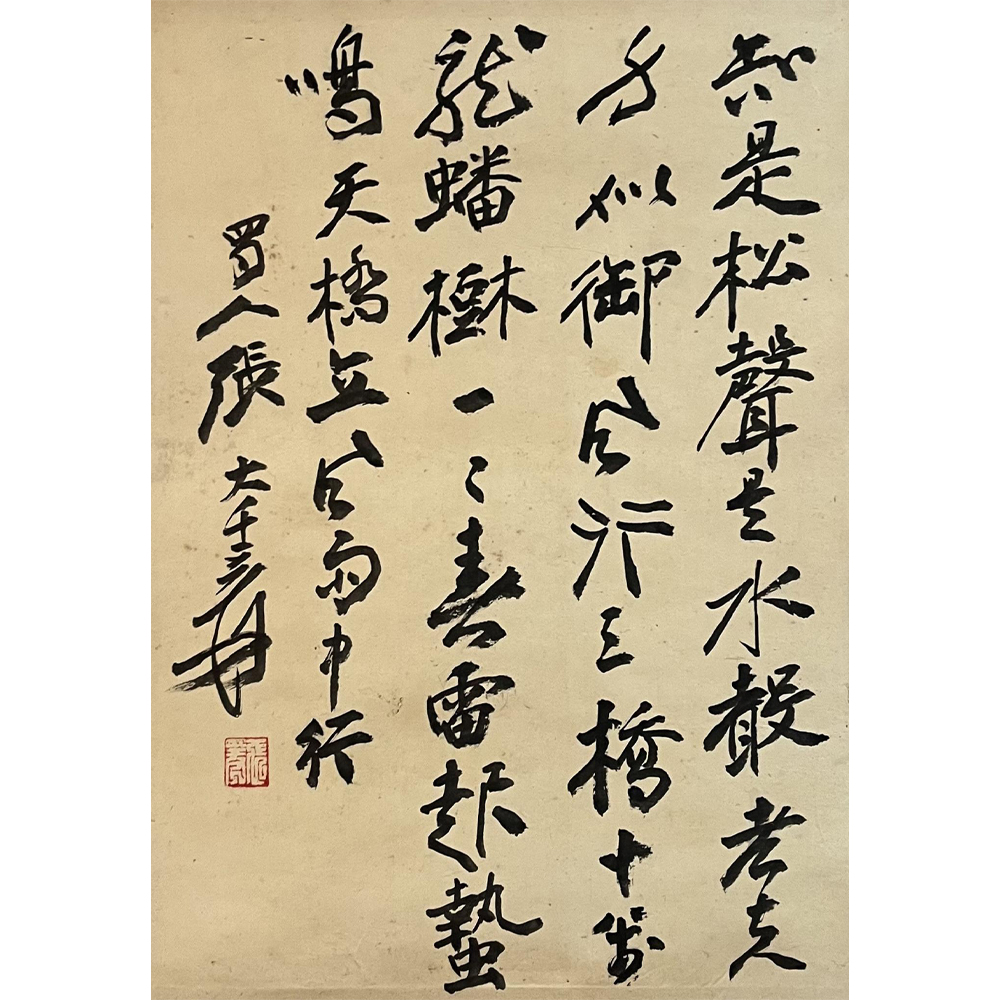 是松聲是水聲老夫
身似御風行三橋十萬
龍蟠樹一〻春雷起蟄
鳴天橋立風雨中行
蜀人張大千爰